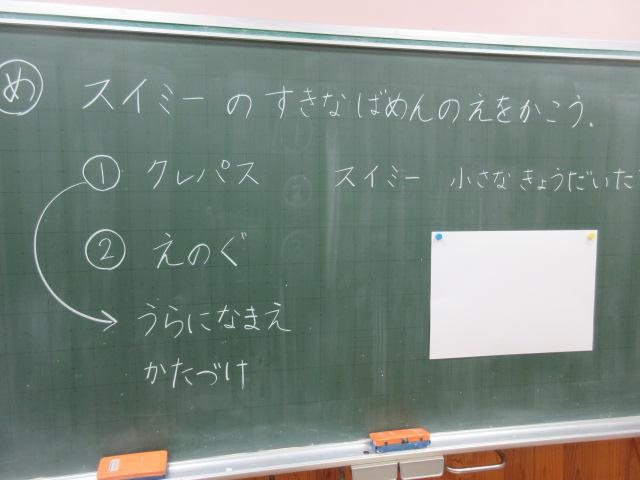 め スイミーのすきなばめんのえをかこう。
① クレパス スイミー 小さなきょうだいた
② えのぐ
うらになまえ
かたづけ